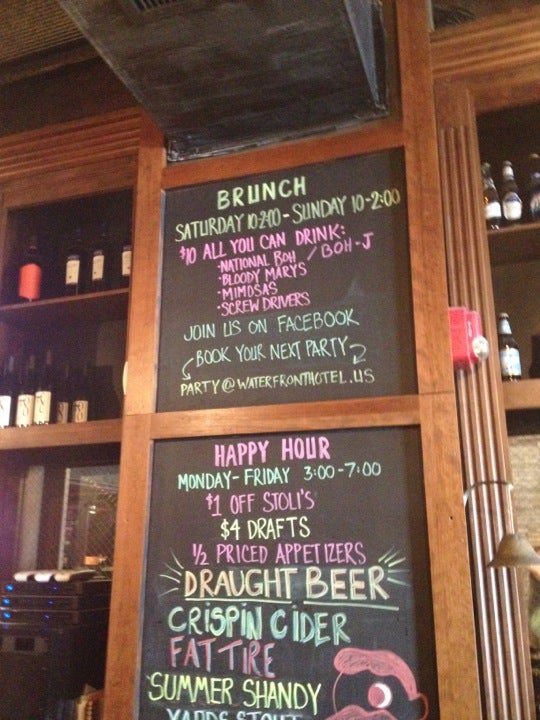 BRUNCH
SATURDAY 10-2:00 - SUNDAY 10-2:00
$10 ALL YOU CAN DRINK:
·NATIONAL BOH / BOH-J
·BLOODY MARYS
·MIMOSAS
·SCREW DRIVERS
JOIN US ON FACEBOOK
BOOK YOUR NEXT PARTY
PARTY@WATERFRONTHOTEL.US
HAPPY HOUR
MONDAY-FRIDAY 3:00-7:00
$1 OFF STOLI'S
$4 DRAFTS
1/2 PRICED APPETIZERS
DRAUGHT BEER
CRISPIN CIDER
FAT TIRE
SUMMER SHANDY
YARDS STOUT